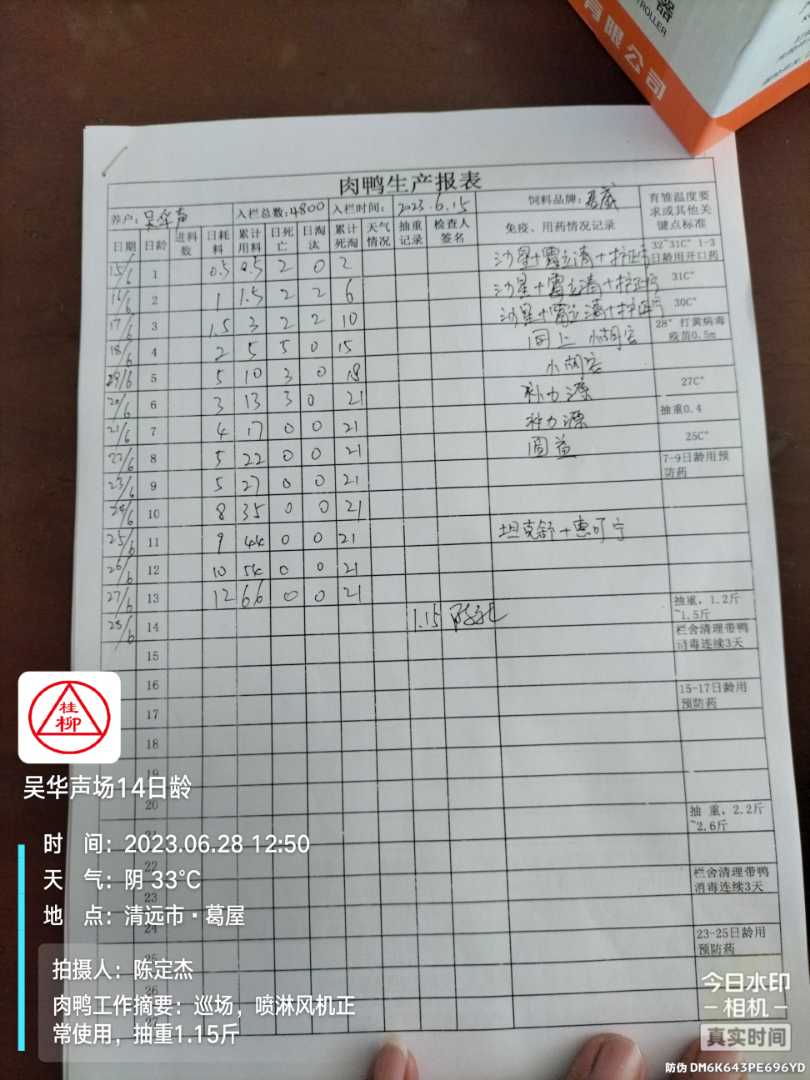 器
CONTROLLER
有限公司
肉鸭生产报表
养户:吴华声 入栏总数:4800 入栏时间: 2023.6.15 饲料品牌: 育雏温度要求或其他关键点标准
日期 日龄 进料数 日耗料 累计用料 日死亡 日淘汰 累计死淘 天气情况 抽重记录 检查人签名 免疫、用药情况记录
15/6 1 0.5 0.5 2 0 2 32~31C° 1-3日龄用开口药
16/6 2 1 1.5 2 2 6 31C°
17/6 3 1.5 3 2 2 10 30C°
18/6 4 2 5 5 0 15 同上 28° 打黄病毒疫苗0.5m
29/6 5 5 10 3 0 18
20/6 6 3 13 3 0 21 补力源 27C°
21/6 7 4 17 0 0 21 补力源 抽重0.4
22/6 8 5 22 0 0 21 圆益 25C°
23/6 9 5 27 0 0 21 7-9日龄用预防药
24/6 10 8 35 0 0 21
25/6 11 9 44 0 0 21 坦克舒+惠可宁
26/6 12 10 54 0 0 21
27/6 13 12 66 0 0 21
28/6 14 1.15 抽重,1.2斤~1.5斤
15 栏舍清理带鸭消毒连续3天
16
17 15-17日龄用预防药
18
19
20
21 抽 重,2.2斤~2.6斤
22
23 栏舍清理带鸭消毒连续3天
24
25 23-25日龄用预防药
26
桂
柳
吴华声场14日龄
时 间:2023.06.28 12:50
天 气:阴 33℃
地 点:清远市·葛屋
拍摄人:陈定杰
肉鸭工作摘要:巡场,喷淋风机正
常使用,抽重1.15斤
今日水印
-相机-
真实时间
防伪 DM6K643PE696YD